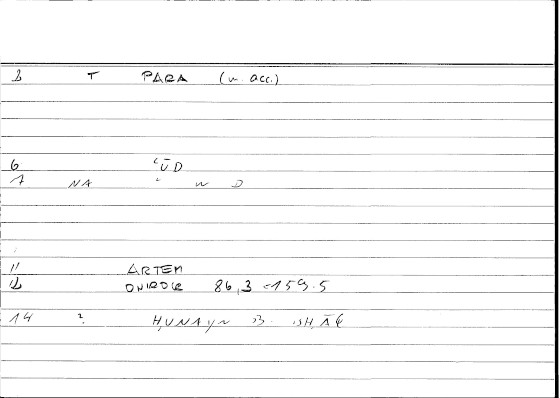 1 T PARA (w. acc.)
6 ʿŪD
7 NA ʿ W D
11 ARTEM
12 ONIROCR 86,3 = 159.5
14 ? ḤUNAYN B. ISḤĀḲ